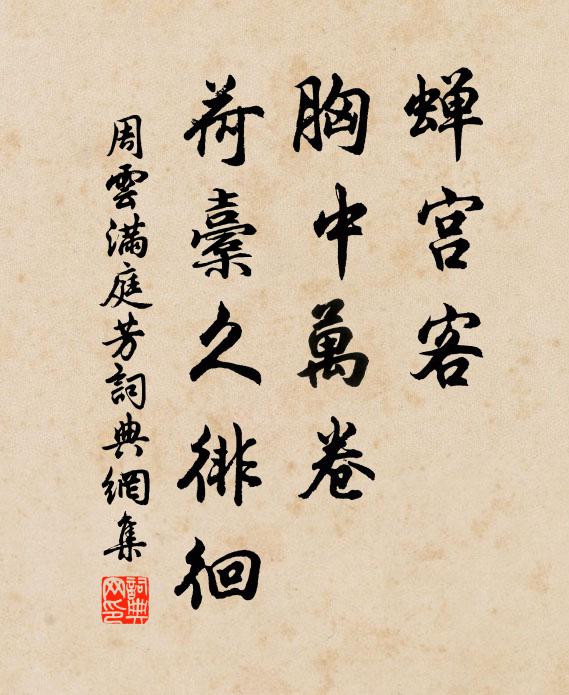 蝉宫客
胸中萬卷
荷橐久徘徊
周雲滿庭芳詞典網集
詞典网印